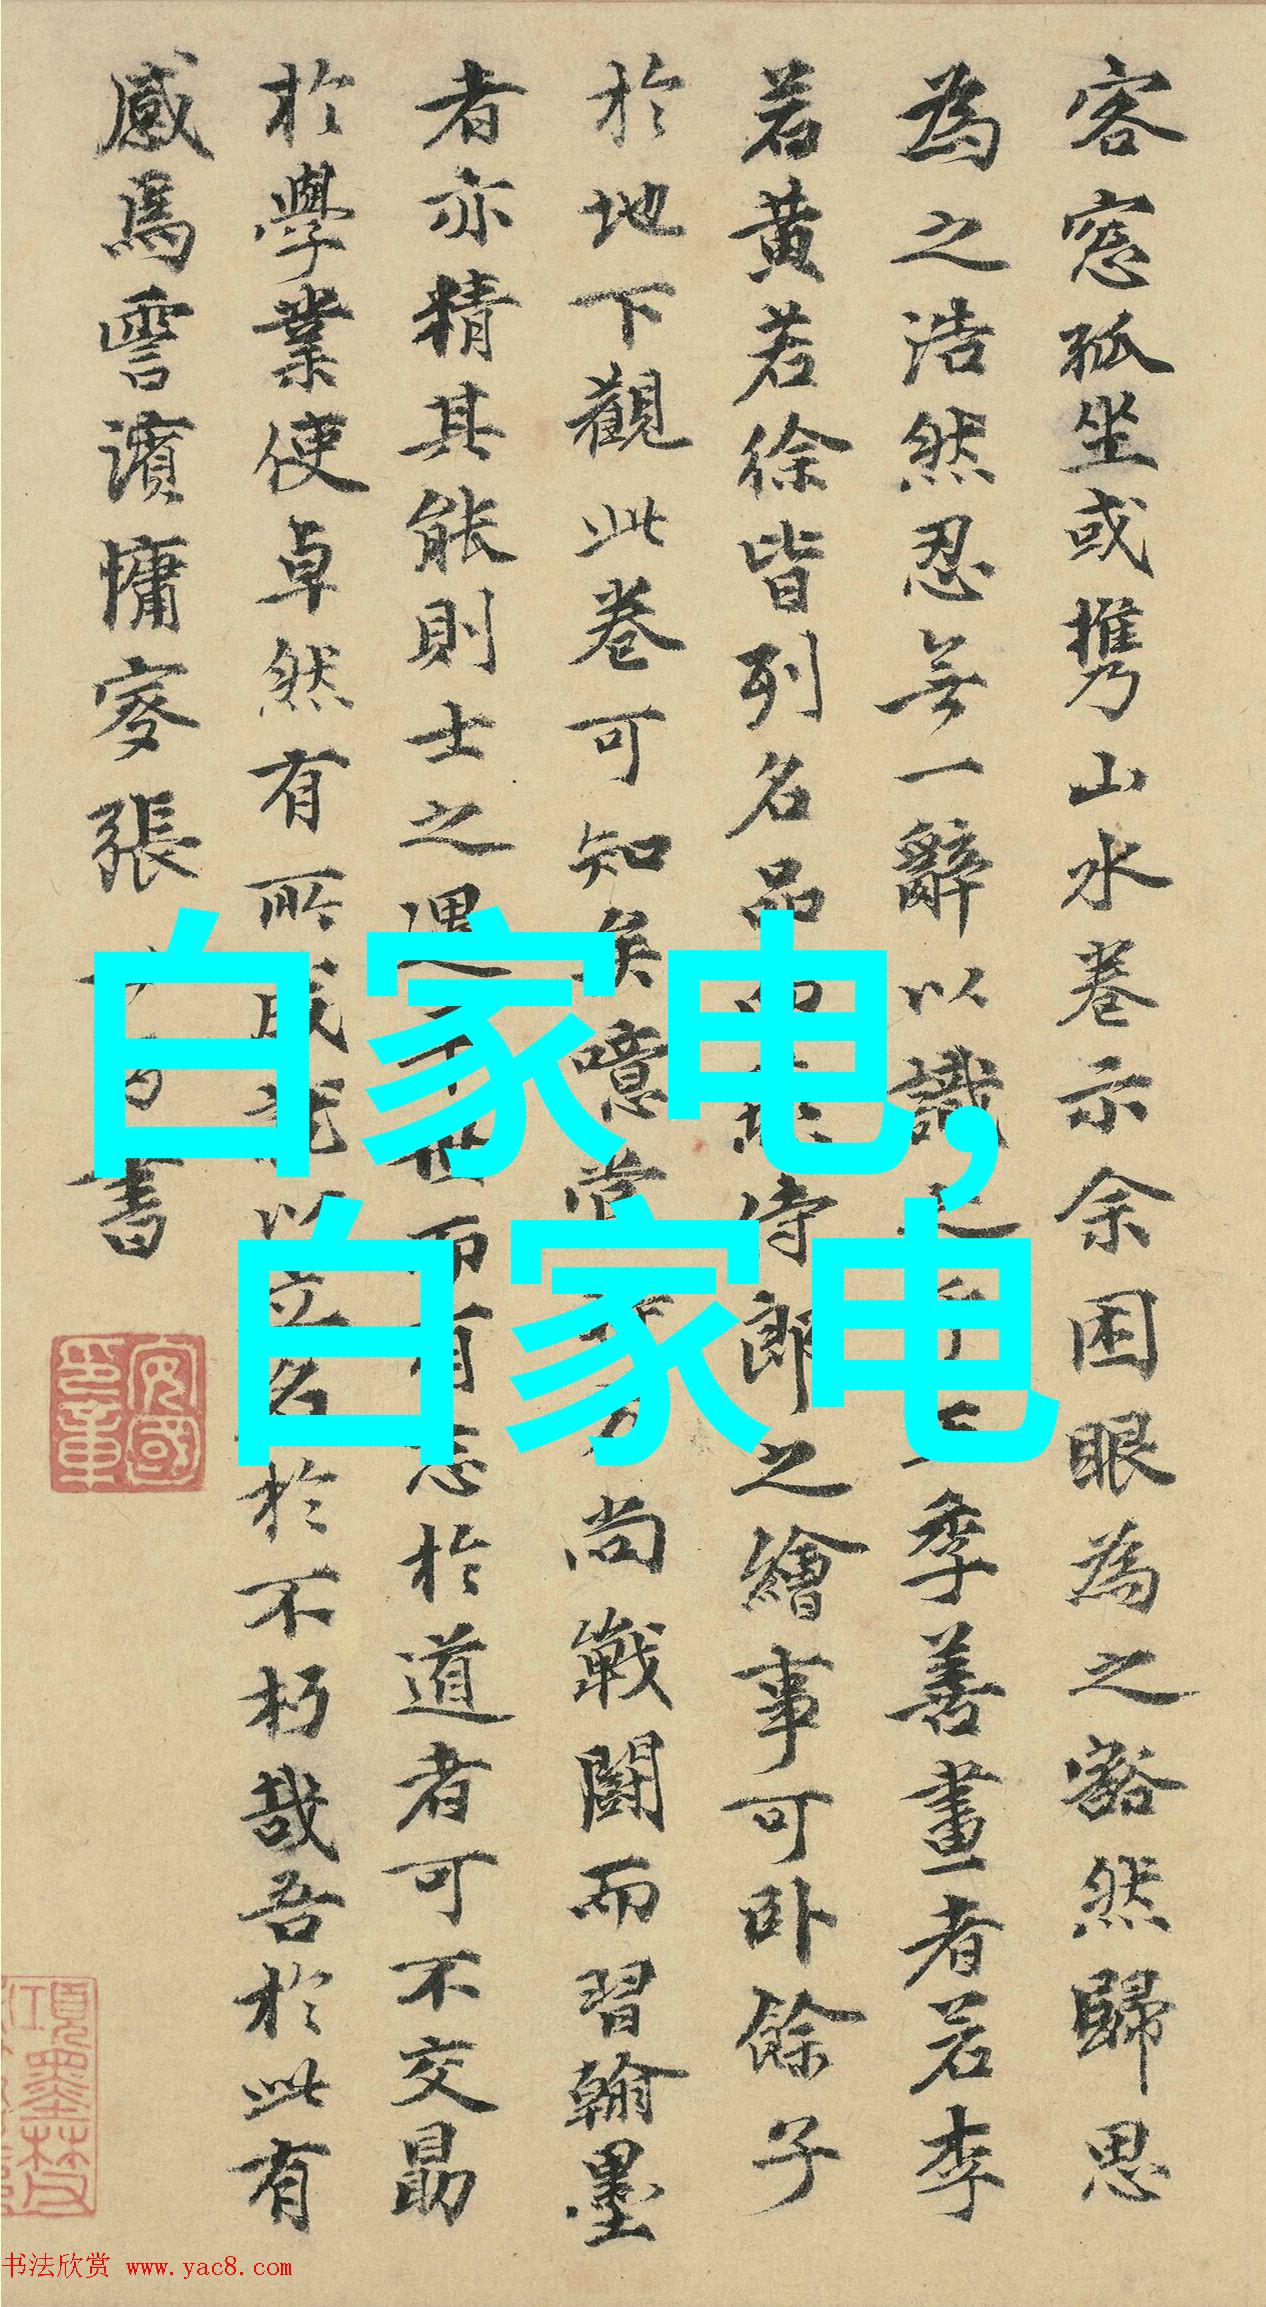 客窓孤坐或携山水卷示余困眼為之豁然歸思
為之浩然忍無一辭以識之季善畫者若李
若黄若徐皆列名品而侍郎之繪事可卧餘子
於地下觀此卷可知矣噫當方尚戰鬪而習翰墨
者亦精其能則士之遇世而有志於道者可不交勗
於學業使卓然有所成就以立名於不朽哉吾於此有
感焉霅濱慵叜張書
白家电,
白家电
书法欣赏 www.yac8.com